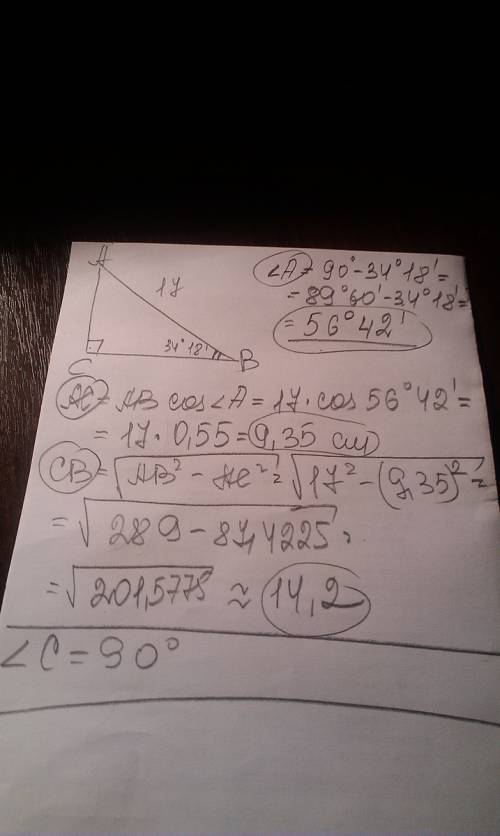 A
17
34°18'
C
B
∠A = 90° - 34°18' =
= 89°60' - 34°18' =
= 56°42'
AC = AB cos∠A = 17 · cos 56°42' =
= 17 · 0,55 = 9,35 см
CB = √AB² - AC² = √17² - (9,35)² =
= √289 - 87,4225 =
= √201,5775 ≈ 14,2
∠C = 90°